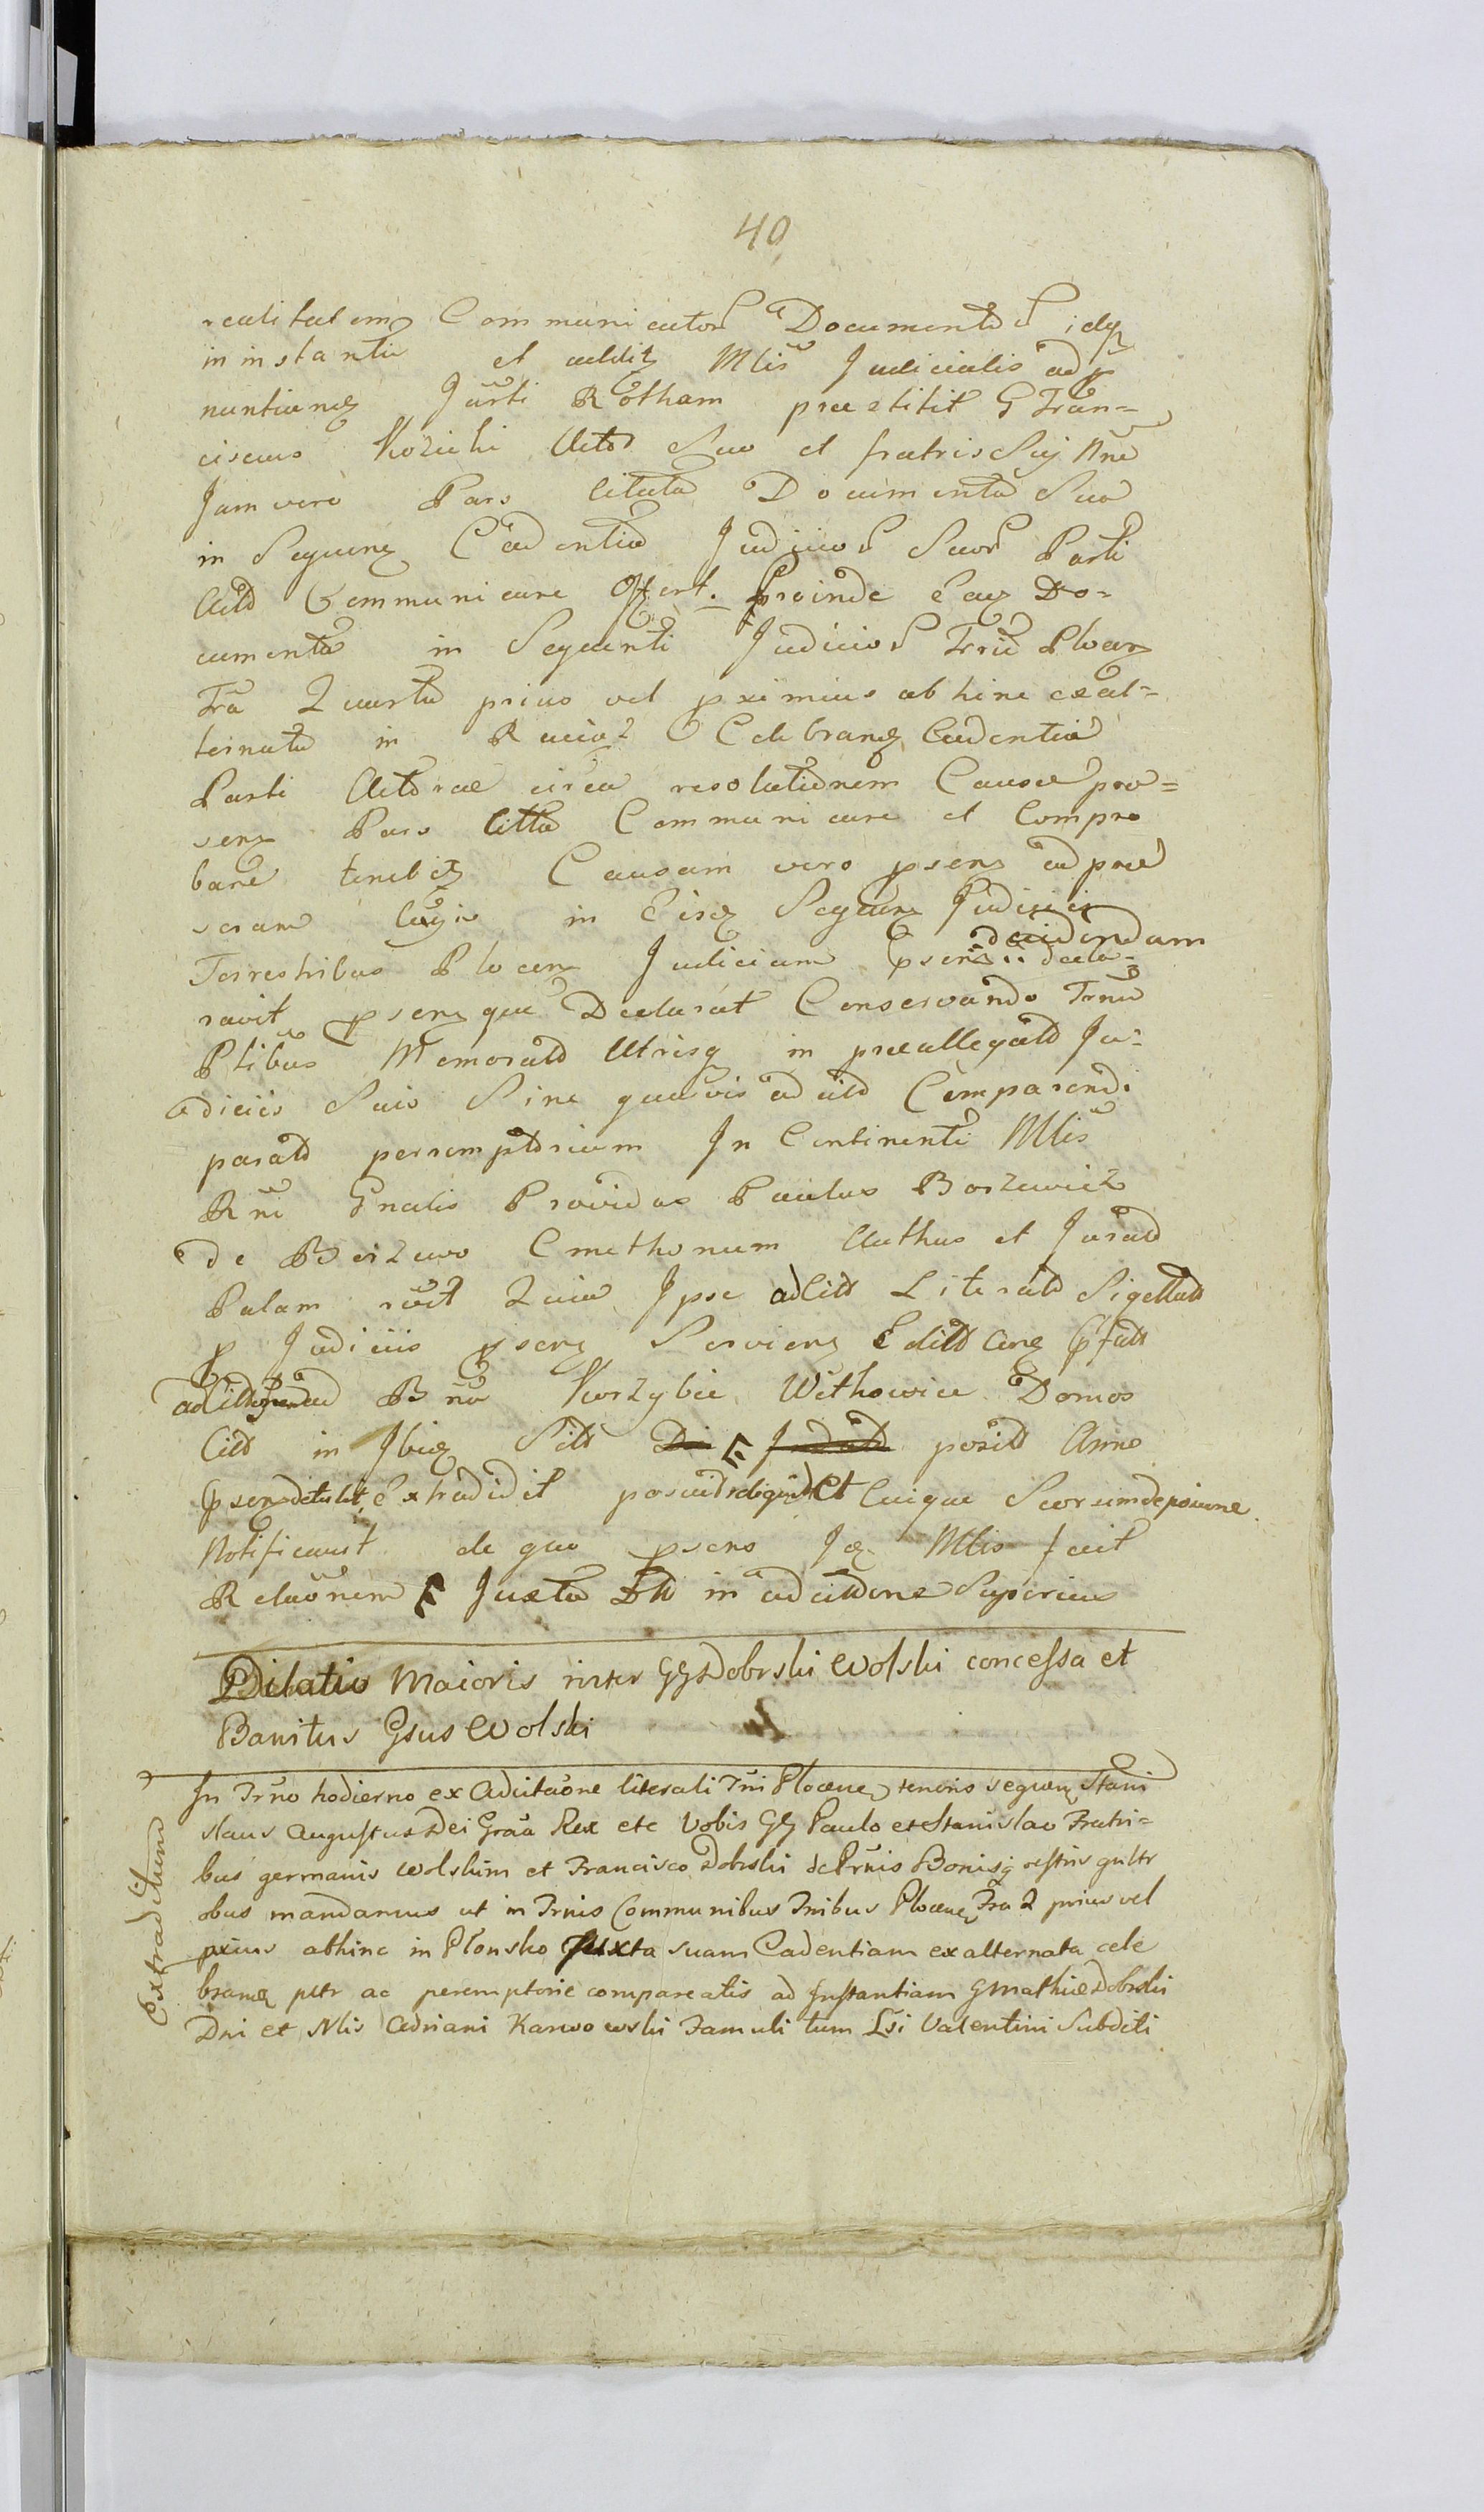 40
realitatem Communicator Documentor idq
in instanti et addit Mlis Judicialis ad p
nuntianq Jurti Rotham praestitit G Fran=
ciscus Kozicki Actor Suo et fratris Sui Nne
Jam vero Pars Citata Documenta Sua
in Sequenq Cadentia Judicior Suor Parti
Acto Communicare Offert. proinde Eaq Do-
cumenta in Sequenti Judicior Trriu Plocen
Fra Quarta prius vel proximius abhinc exal=
ternata in Raciaz Celebranq Cadentia
Parti Actorae circa resolutionem Causae prae=
senq Pars Citta Communicare et Compro
bare tenebit Causam vero psenq ad prae
in Eisq Sequenq Judiciis
decidendam
Terrestribus Plocen Judicium psens decla-
ravit psenq que Declarat Conservando Trnu
Ptibus Memorato Utrisq in praeallegato Ju=
diciis Suis Sine quavis adcito Comparendi
parato perremptorium In Continenti Mlis
Rni Gnalis Providus Paulus Borzewicz
de Borzewo Cmethonum Authus et Jurato
Palam rcit Quia Ipse adCito Literato Sigellato
p Judiciis psenq Servienq Edito
Bna Korzybie Witkowice Domos
Cito in Ibiq Sito posito Anno
psenq detulit Extradidit posuit reliquit Et Cuique Seorsim de posicione
Notificavit de quo psens Jq Mlis fecit
Relaonem Juxta in adcitione Superius
Dilatio Maioris inter GG Dobrski Wolski concessa et
Banitus Gsus Wolski
Extraditum
In Trno hodierno ex Adcitaone literali Trni Plocenq tenoris sequenq Stani
slaus Augustus Dei Graa Rex etc Vobis GG Paulo et Stanislao Fratri=
bus germanis Wolskim et Francisco Dobrski de Prnis Bonisq vestris gnltr
obus mandamus ut in Trnis Communibus Tribus Plocenq Fra 2 prius vel
pxius abhinc in Płonsko Juxta suam Cadentiam exalternata cele
branq pltr ac peremptorie compareatis ad Instantiam G Mathiae Dobrski
Dni et Nlis Adriani Karwowski Famuli tum Lsi Valentini Subditi